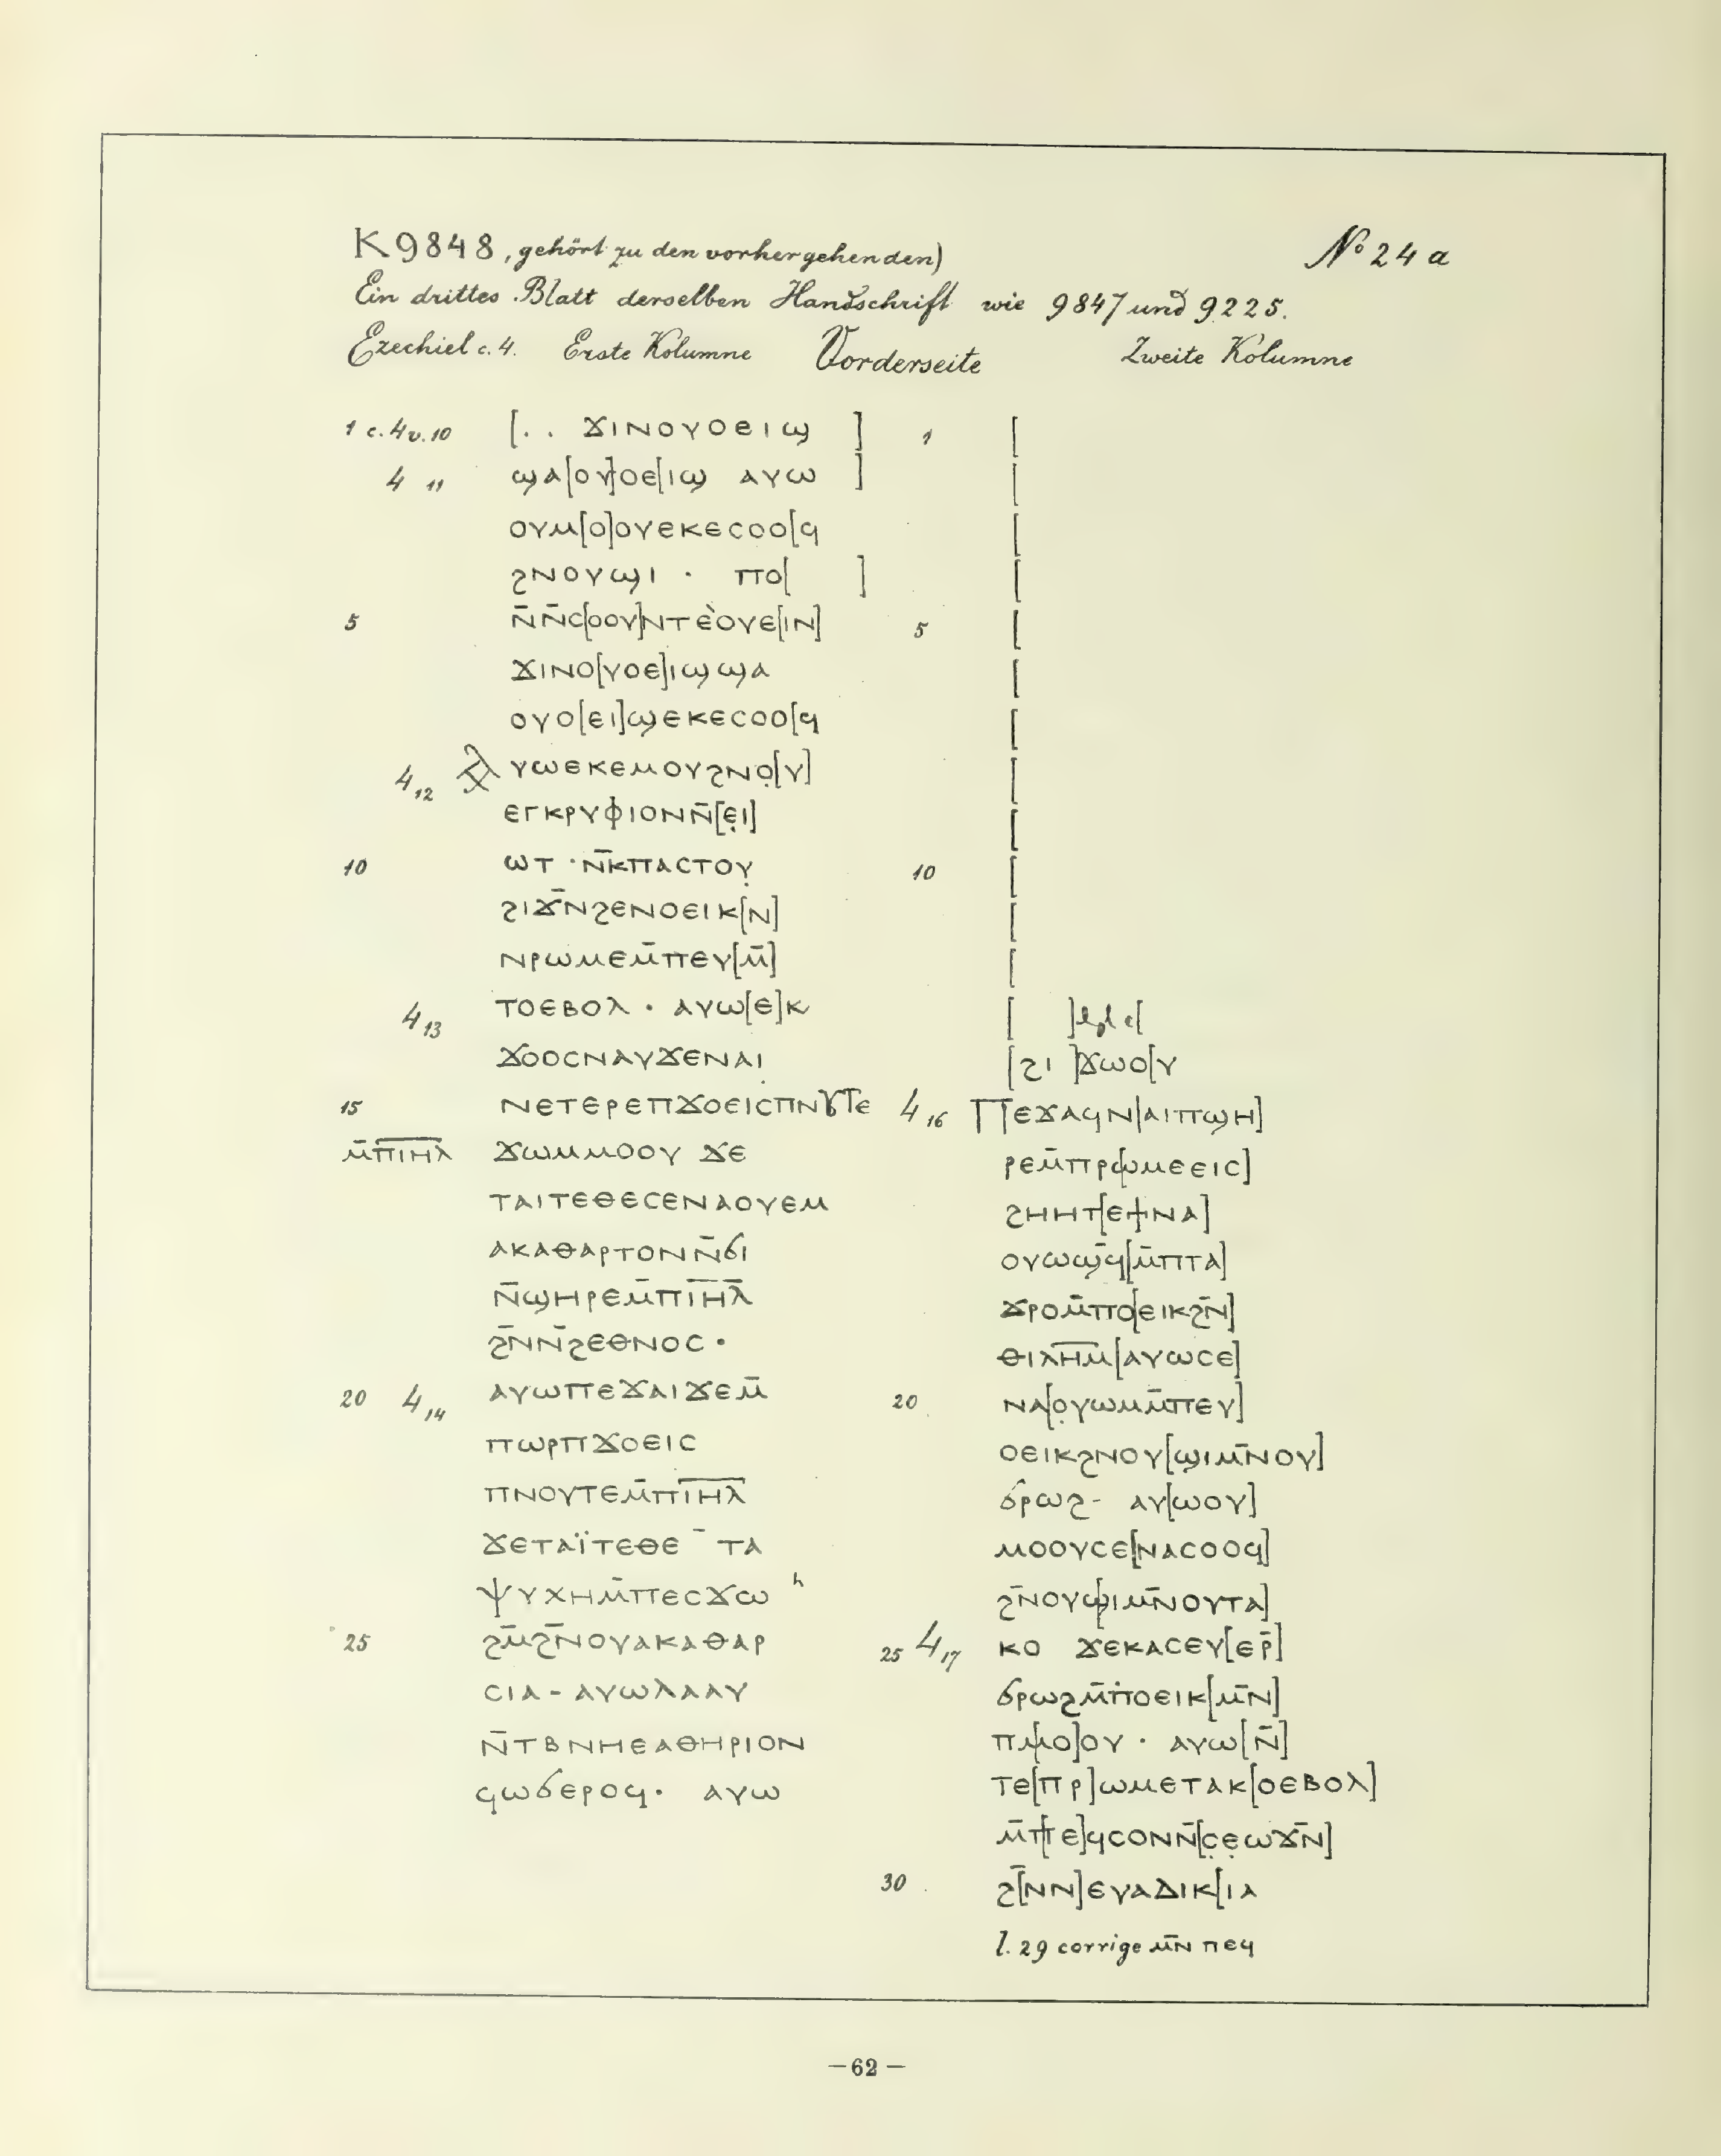 K 9848, gehört zu den vorhergehenden)
№ 24 a
Ein drittes Blatt derselben Handschrift wie 9847 und 9225.
Ezechiel c. 4. Erste Kolumne Vorderseite Zweite Kolumne
1 c. 4 v. 10 [. . ϫⲓⲛⲟⲩⲟⲉⲓϣ ]
4 11 ϣⲁ[ⲟⲩ]ⲟⲉ[ⲓϣ ⲁⲩⲱ ]
ⲟⲩⲙ[ⲟ]ⲟⲩⲉⲕⲉⲥⲟⲟ[ϥ
ϩⲛⲟⲩϣⲓ · ⲡⲟ[ ]
5 ⲛ̄ⲛ̄ⲥ[ⲟⲟⲩ]ⲛⲧⲉ̀ⲟⲩⲉ[ⲓⲛ]
ϫⲓⲛⲟ[ⲩⲟⲉ]ⲓϣϣⲁ
ⲟⲩⲟ[ⲉⲓ]ϣⲉⲕⲉⲥⲟⲟ[ϥ
4 12 ⲁⲩⲱⲉⲕⲉⲙⲟⲩϩⲛⲟ̣[ⲩ]
ⲉⲅⲕⲣⲩⲫⲓⲟⲛⲛ̄[ⲉ̣ⲓ]
10 ⲱⲧ ·ⲛ̄ⲕⲡⲁⲥⲧⲟⲩ̣
ϩⲓϫ̄ⲛϩⲉⲛⲟⲉⲓⲕ[ⲛ]
ⲛⲣⲱⲙⲉⲙ̄ⲡⲉⲩ[ⲙ̄]
4 13 ⲧⲟⲉⲃⲟⲗ · ⲁⲩⲱ[ⲉ]ⲕ
ϫⲟⲟⲥⲛⲁⲩϫⲉⲛⲁⲓ
15 ⲛⲉⲧⲉⲣⲉⲡϫⲟⲉⲓⲥⲡⲛⲟⲩⲧⲉ
ⲙ̄ⲡⲓⲏⲗ ϫⲱⲙⲙⲟⲟⲩ ϫⲉ
ⲧⲁⲓⲧⲉⲑⲉⲥⲉⲛⲁⲟⲩⲉⲙ
ⲁⲕⲁⲑⲁⲣⲧⲟⲛⲛ̄ϭⲓ
ⲛ̄ϣⲏⲣⲉⲙ̄ⲡⲓ̄ⲏ̄ⲗ̄
ϩ̄ⲛⲛ̄ϩⲉⲑⲛⲟⲥ ·
20 4 14 ⲁⲩⲱⲡⲉϫⲁⲓϫⲉⲙ̄
ⲡⲱⲣⲡϫⲟⲉⲓⲥ
ⲡⲛⲟⲩⲧⲉⲙ̄ⲡⲓ̄ⲏ̄ⲗ̄
ϫⲉⲧⲁⲓ̈ⲧⲉⲑⲉ ‾ ⲧⲁ
ⲯⲩⲭⲏⲙ̄ⲡⲉⲥϫⲱ ʰ
25 ϩⲙ̄ϩ̄ⲛⲟⲩⲁⲕⲁⲑⲁⲣ
ⲥⲓⲁ - ⲁⲩⲱⲗⲁⲁⲩ
ⲛ̄ⲧⲃⲛⲏⲉⲁⲑⲏⲣⲓⲟⲛ
ϥⲱϭⲉⲣⲟϥ· ⲁⲩⲱ
1 [
[
[
[
5 [
[
[
[
[
10 [
[
[
[ ] [
[ϩⲓ ]ϫⲱⲟ[ⲩ
4 16 ⲡⲉϫⲁϥⲛ[ⲁⲓⲡϣⲏ]
ⲣⲉⲙ̄ⲡⲣ[ⲱⲙⲉⲉⲓⲥ]
ϩⲏⲏⲧ[ⲉϯⲛⲁ]
ⲟⲩⲱϣ̄ϥ[ⲙ̄ⲡⲧⲁ]
ϫⲣⲟⲙ̄ⲡⲟ[ⲉⲓⲕϩⲛ̄]
ⲑⲓⲗ̄ⲏ̄ⲙ̄[ⲁⲩⲱⲥⲉ]
20 ⲛⲁ[ⲟ̣ⲩⲱⲙⲙ̄ⲡⲉⲩ]
ⲟⲉⲓⲕϩⲛⲟⲩ[ϣⲓⲙ̄ⲛⲟⲩ]
ϭⲣⲱϩ- ⲁⲩ[ⲱⲟⲩ]
ⲙⲟⲟⲩⲥⲉ[ⲛⲁⲥⲟⲟϥ]
ϩ̄ⲛⲟⲩϣ[ⲓⲙ̄ⲛⲟⲩⲧⲁ]
25 4 17 ⲕⲟ ϫⲉⲕⲁⲥⲉⲩ[ⲉⲣ̄]
ϭⲣⲱϩⲙ̄ⲡⲟⲉⲓⲕ[ⲙ̄ⲛ]
ⲡⲙ[ⲟ]ⲟⲩ · ⲁⲩⲱ[ⲛ̄]
ⲧⲉ[ⲡⲣ]ⲱⲙⲉⲧⲁⲕ[ⲟⲉⲃⲟⲗ]
ⲙ̄ⲡ[ⲉ]ϥⲥⲟⲛⲛ̄[ⲥ̣ⲉ̣ⲱϫ̄ⲛ]
30 ϩ̄[ⲛⲛ]ⲉⲩⲁⲇⲓⲕ[ⲓⲁ
l. 29 corrige ⲙ̄ⲛ ⲡⲉϥ
—62—